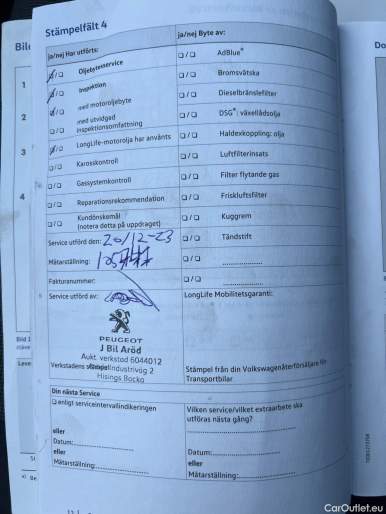 Stämpelfält 4
ja/nej Har utförts:
ja/nej Byte av:
Oljebytesservice
AdBlue®
Inspektion
Bromsvätska
med motoroljebyte
Dieselbränslefilter
med utvidgad
inspektionsomfattning
DSG®: växellådsolja
LongLife-motorolja har använts
Haldexkoppling: olja
Karosskontroll
Luftfilterinsats
Gassystemkontroll
Filter flytande gas
Reparationsrekommendation
Friskluftsfilter
Kundönskemål
(notera detta på uppdraget)
Kuggrem
Service utförd den: 20/12-23
Tändstift
Mätarställning:
Fakturanummer:
Service utförd av:
LongLife Mobilitetsgaranti:
PEUGEOT
J Bil Aröd
Aukt. verkstad 6044012
Verkstadens stämpel
Hisings Backa
Stämpel från din Volkswagenåterförsäljare för
Transportbilar
Din nästa Service
enligt serviceintervallindikeringen
Vilken service/vilket extraarbete ska
utföras nästa gång?
eller
Datum:
eller
Mätarställning:
Datum:
eller
Mätarställning:
1
2
3
4
CarOutlet.eu